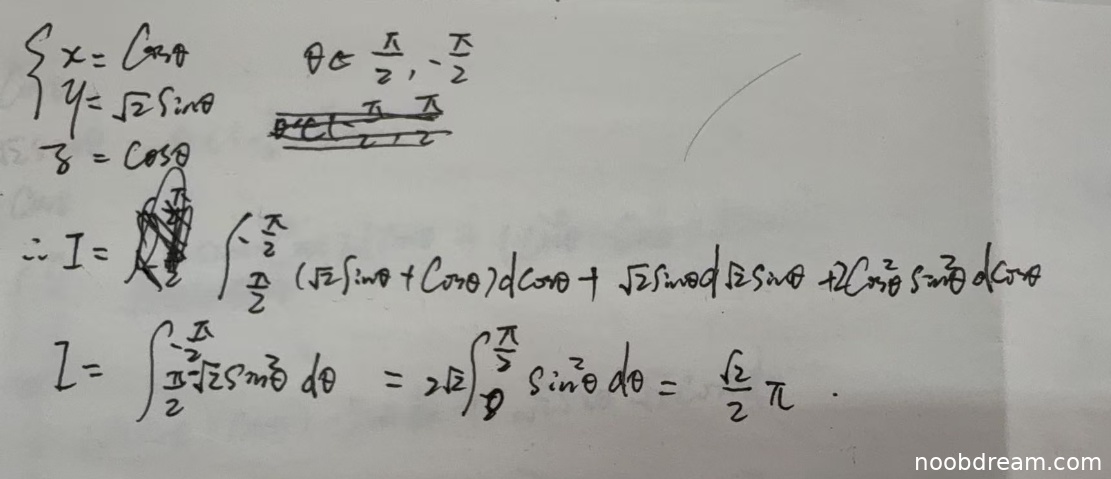 { x = Cosθ    θ∈ π/2, -π/2
y = √2 Sinθ
z = Cosθ
∴ I = ∫_{π/2}^{-π/2} (√2 Sinθ + Cosθ) d Cosθ + √2 Sinθ d √2 Sinθ + 2Cos²θ Sin²θ d Cosθ
I = ∫_{π/2}^{-π/2} -√2 Sin²θ dθ = 2√2 ∫_0^{π/2} Sin²θ dθ = √2/2 π .
noobdream.com